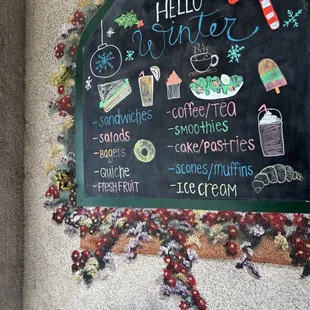 HELLO
Winter
- SANDWICHES
- salads
- Bagels
- Quiche
- FRESH FRUIT
- coffee/TEA
- SMOOTHIES
- cake/pastries
- scones/muffins
- ICE CREAM